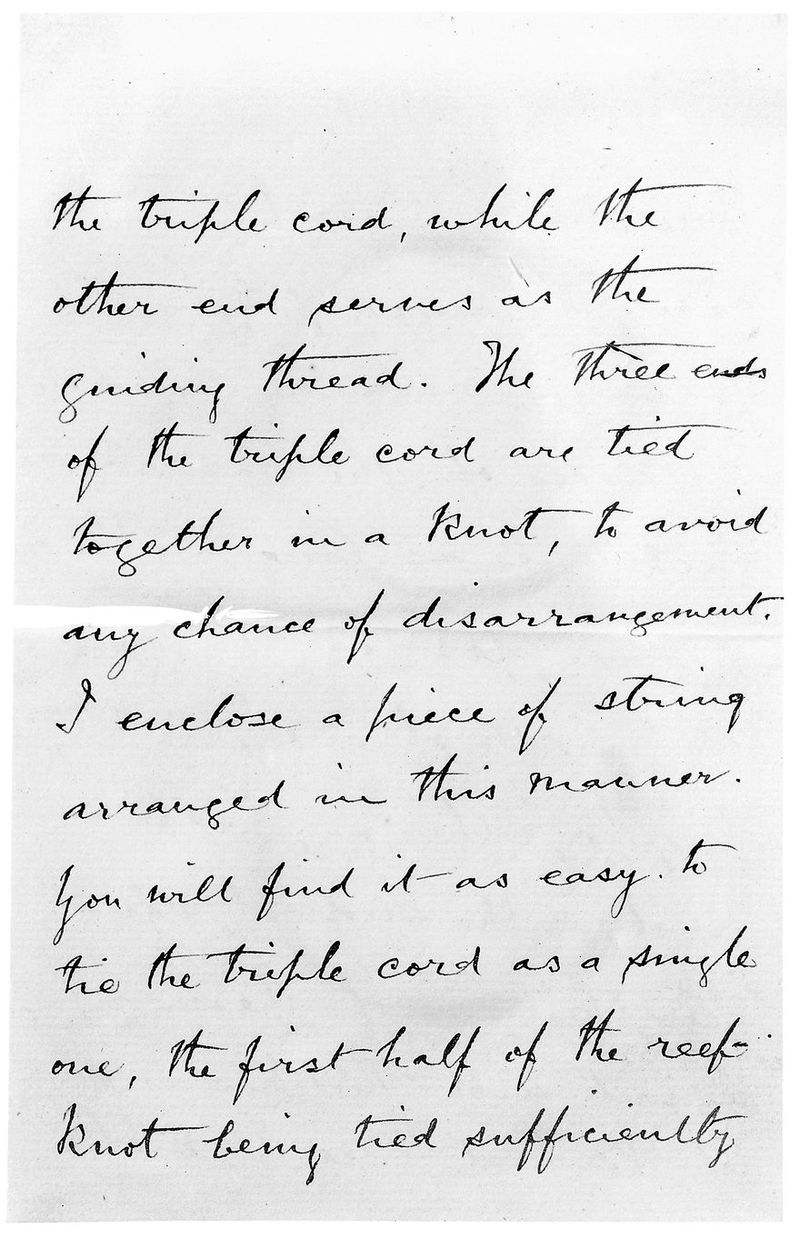 the triple cord, while the
other end serves as the
guiding thread. The three ends
of the triple cord are tied
together in a knot, to avoid
any chance of disarrangement.
I enclose a piece of string
arranged in this manner.
You will find it as easy to
tie the triple cord as a single
one, the first half of the reef-
knot being tied sufficiently